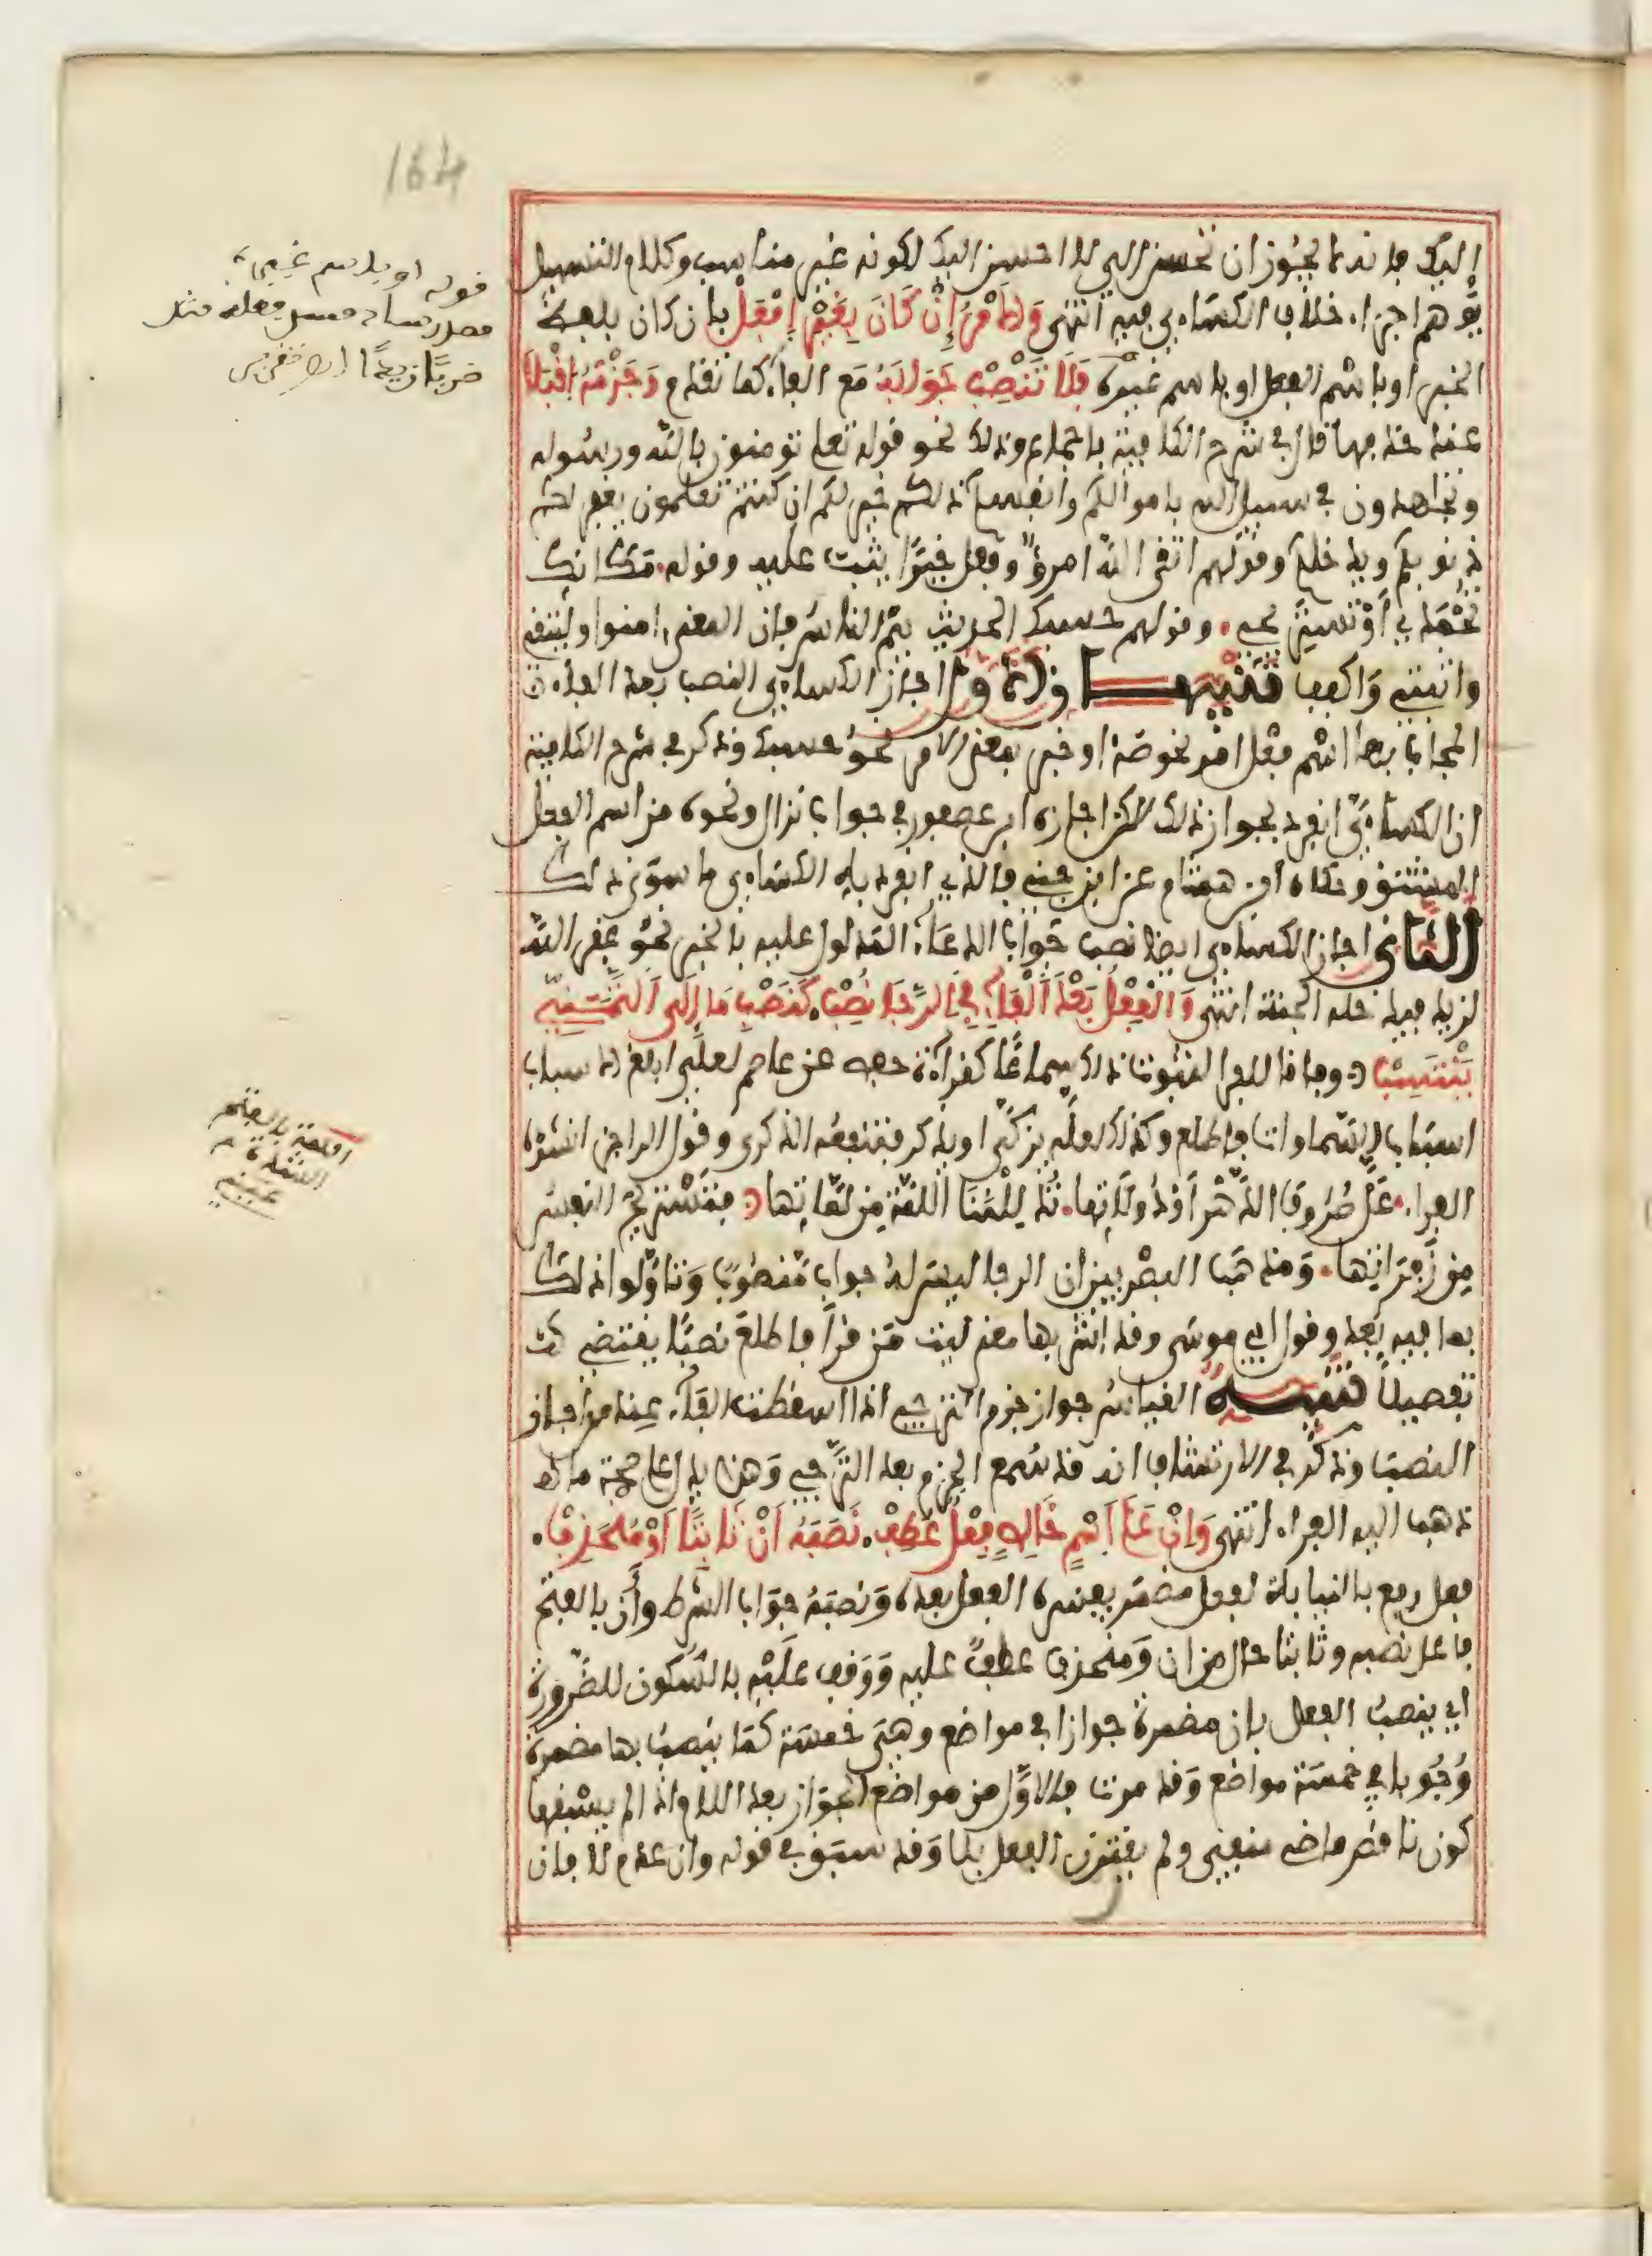 164
قوله او باسم غيره
مصدر ساد مسد فعله مثل
ضربا زيدا
إليك فإنه لا يجوز أن تحسن إلي لا أحسن إليك لكونه غير مناسب وكلام التسهيل
يوهم إجراء خلاف الكسائي فيه انتهى وَالأَمْرُ إِنْ كَانَ بِغَيْرِ افْعَلْ بأن كان بلفظ
الخبر أو باسم الفعل أو باسم غيره فَلَا تَنْصِبْ جَوَابَهُ مع الفاء كما تقدم وَجَزْمَهُ اقْبَلَا
عند حذفها قال في شرح الكافية بإجماع وذلك نحو قوله تعلى تومنون بالله ورسوله
وتجاهدون في سبيل الله بأموالكم وأنفسكم ذلكم خير لكم إن كنتم تعلمون يغفر لكم
ذنوبكم ويدخلكم وقولهم اتقى الله امرؤ وفعل خيرا يثب عليه وقوله مكانك
تحمدي أو تستريحي وقولهم حسبك الحديث ينم الناس فإن المعنى امنوا وليتق
واثبتي واكفف تنبيهان الأول أجاز الكسائي النصب بعد الفاء
المجاب بها اسم فعل أمر نحو صه أو خبر بمعنى الأمر نحو حسبك وذكر في شرح الكافية
أن الكسائي انفرد بجواز ذلك لكن أجازه ابن عصفور في جواب نزال ونحوه من اسم الفعل
المشتق وحكاه ابن هشام عن ابن جني فالذي انفرد به الكسائي ما سوى ذلك
الثاني أجاز الكسائي أيضا نصب جواب الدعاء المدلول عليه بالخبر نحو غفر الله
لزيد فيدخله الجنة انتهى وَالْفِعْلُ بَعْدَ الْفَاءِ فِي الرَّجَا نُصِبْ كَنَصْبِ مَا إِلَى التَّمَنِّي
يَنْتَسِبْ وفاقا للفرا لثبوت ذلك سماعا كقراءة حفص عن عاصم لعلي أبلغ الأسباب
أسباب السماوات فأطلع وكذلك لعله يزكى أو يذكر فتنفعه الذكرى وقول الراجز أنشده
الفراء عل صروف الدهر أو دولاتها تدللنا اللمة من لماتها فتستريح النفس
من زفراتها ومذهب البصريين أن الرجا ليس له جواب منصوب وتأولوا ذلك
بما فيه بعد وقول أبي موسى وقد أشربها معنى ليت من قرأ فاطلع نصبا يقتضي
تفصيلا تنبيه القياس جواز جزم الترجي إذا اسقطت الفاء عند من أجاز
النصب وذكر في الارتشاف أنه قد سمع الجزم بعد الترجي وهذا يدل على صحة ما
ذهب إليه الفراء انتهى وَإِنْ عَلَى اسْمٍ خَالِصٍ فِعْلٌ عُطِفْ نَصَبَهُ أَنْ ثَابِتًا أَوْ مُنْحَذِفْ
فعل رفع بالنيابة لفعل مضمر يفسره الفعل بعده ونصبه جواب الشرط وأن بالفتح
فاعل نصبه وثابتا حال من ان ومنحذف عطف عليه ووقف عليه بالسكون للضرورة
أي ينصب الفعل بان مضمرة جوازا في مواضع وهي خمسة كما ينصب بها مضمرة
وجوبا في خمسة مواضع وقد مرت فالأول من مواضع الجواز بعد اللام إذا لم يسبقها
كون ناقص ماض منفي ولم يقترن الفعل بلا وقد سبق في قوله وان عدم لا فان